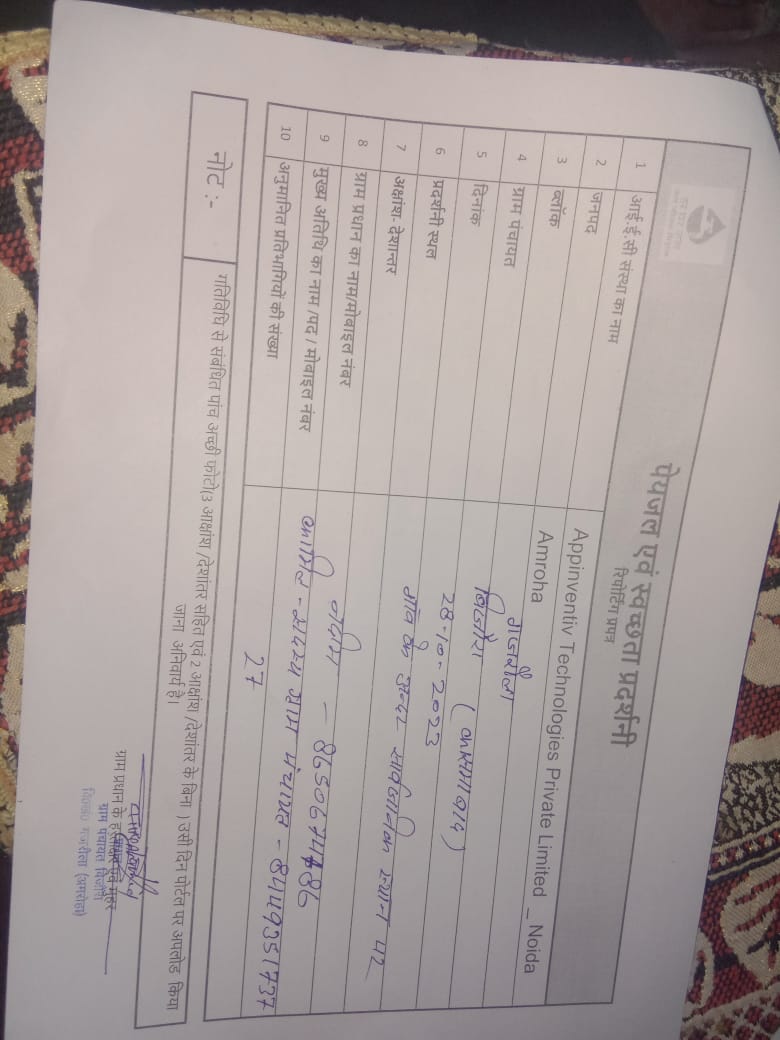 पेयजल एवं स्वच्छता प्रदर्शनी
रिपोर्टिंग प्रपत्र
1 आई.ई.सी संस्था का नाम Appinventiv Technologies Private Limited _ Noida
2 जनपद Amroha
3 ब्लॉक गजरौला
4 ग्राम पंचायत
5 दिनांक 28-10-2023
6 प्रदर्शनी स्थल गाँव के अन्दर सार्वजनिक स्थान पर
7 अक्षांश- देशान्तर
8 ग्राम प्रधान का नाम/मोबाइल नंबर
9 मुख्य अतिथि का नाम /पद / मोबाइल नंबर सदस्य ग्राम पंचायत - 8449351737
10 अनुमानित प्रतिभागियों की संख्या 27
नोट :- गतिविधि से संबंधित पांच अच्छी फोटो(3 आक्षांश /देशांतर सहित एवं 2 आक्षांश /देशांतर के बिना ) उसी दिन पोर्टल पर अपलोड किया
जाना अनिवार्य है।
ग्राम प्रधान के हस्ताक्षर एवं मुहर
ग्राम पंचायत
गजरौला (अमरोहा)